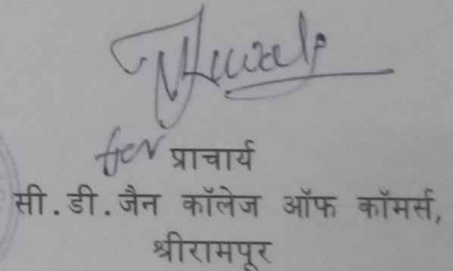 for प्राचार्य
सी.डी.जैन कॉलेज ऑफ कॉमर्स,
श्रीरामपूर